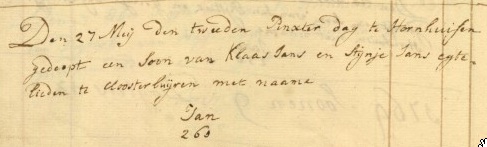 Den 27 Meij den tweeden Pinxter dag te Hornhuisen
gedoopt een Soon van Klaas Jans en Stijnje Jans egte-
lieden te Cloosterbuijren met naame
Jan
260